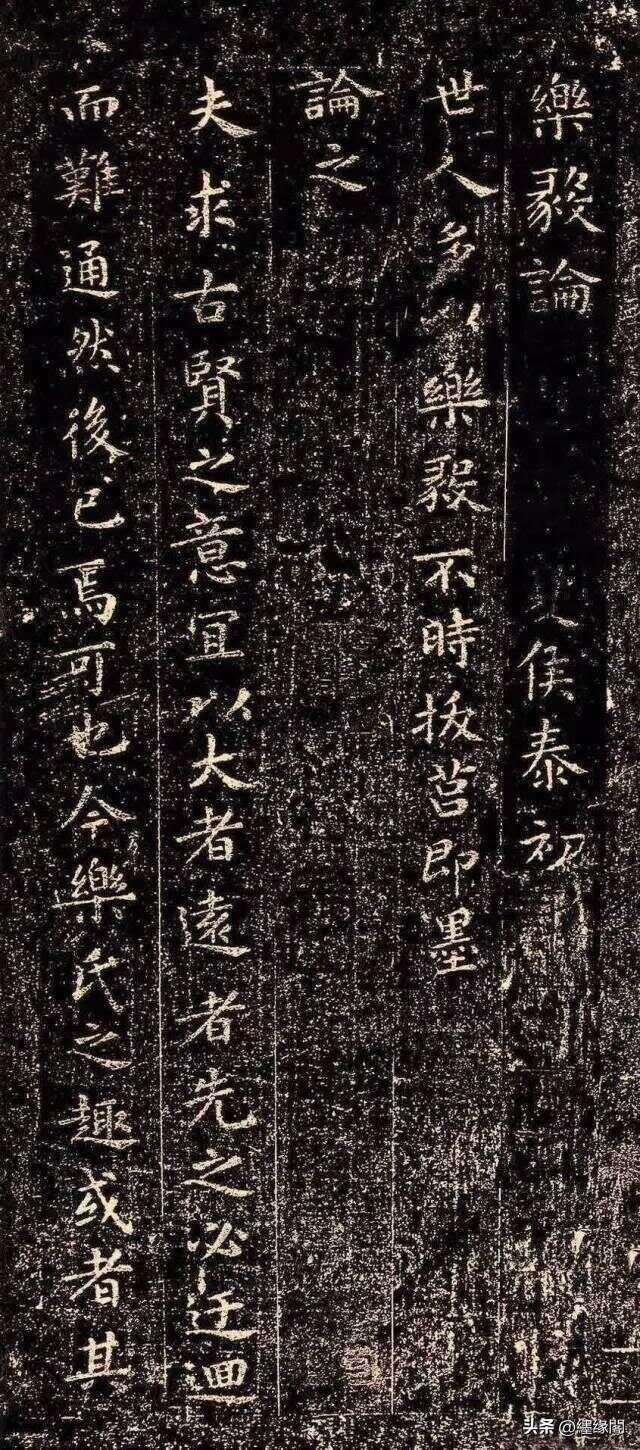 樂毅論 侯泰初
世人多以樂毅不時拔莒即墨
論之
夫求古賢之意宜以大者遠者先之必迂迴
而難通然後已焉可也今樂氏之趣或者其
头条 @缘閣